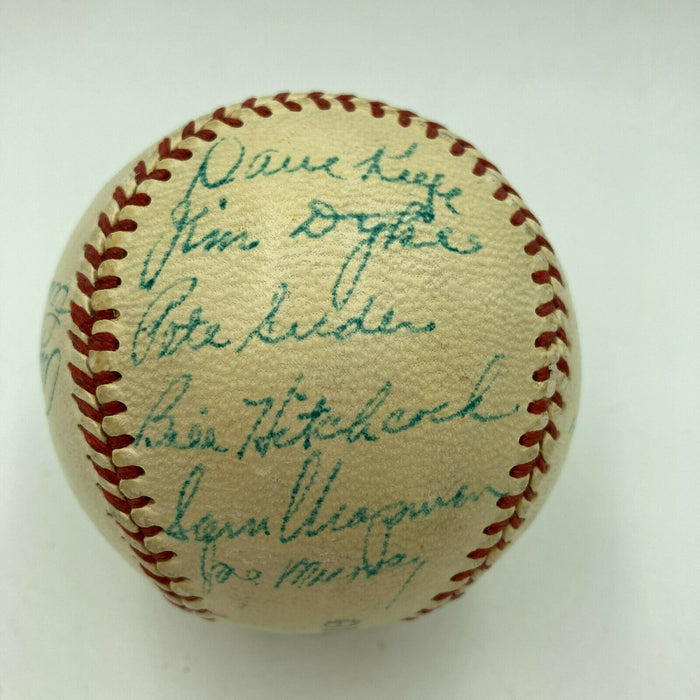 Dave Keefe
Jim Dykes
Pete Suder
Bill Hitchcock
Sam Chapman
Joe Murray